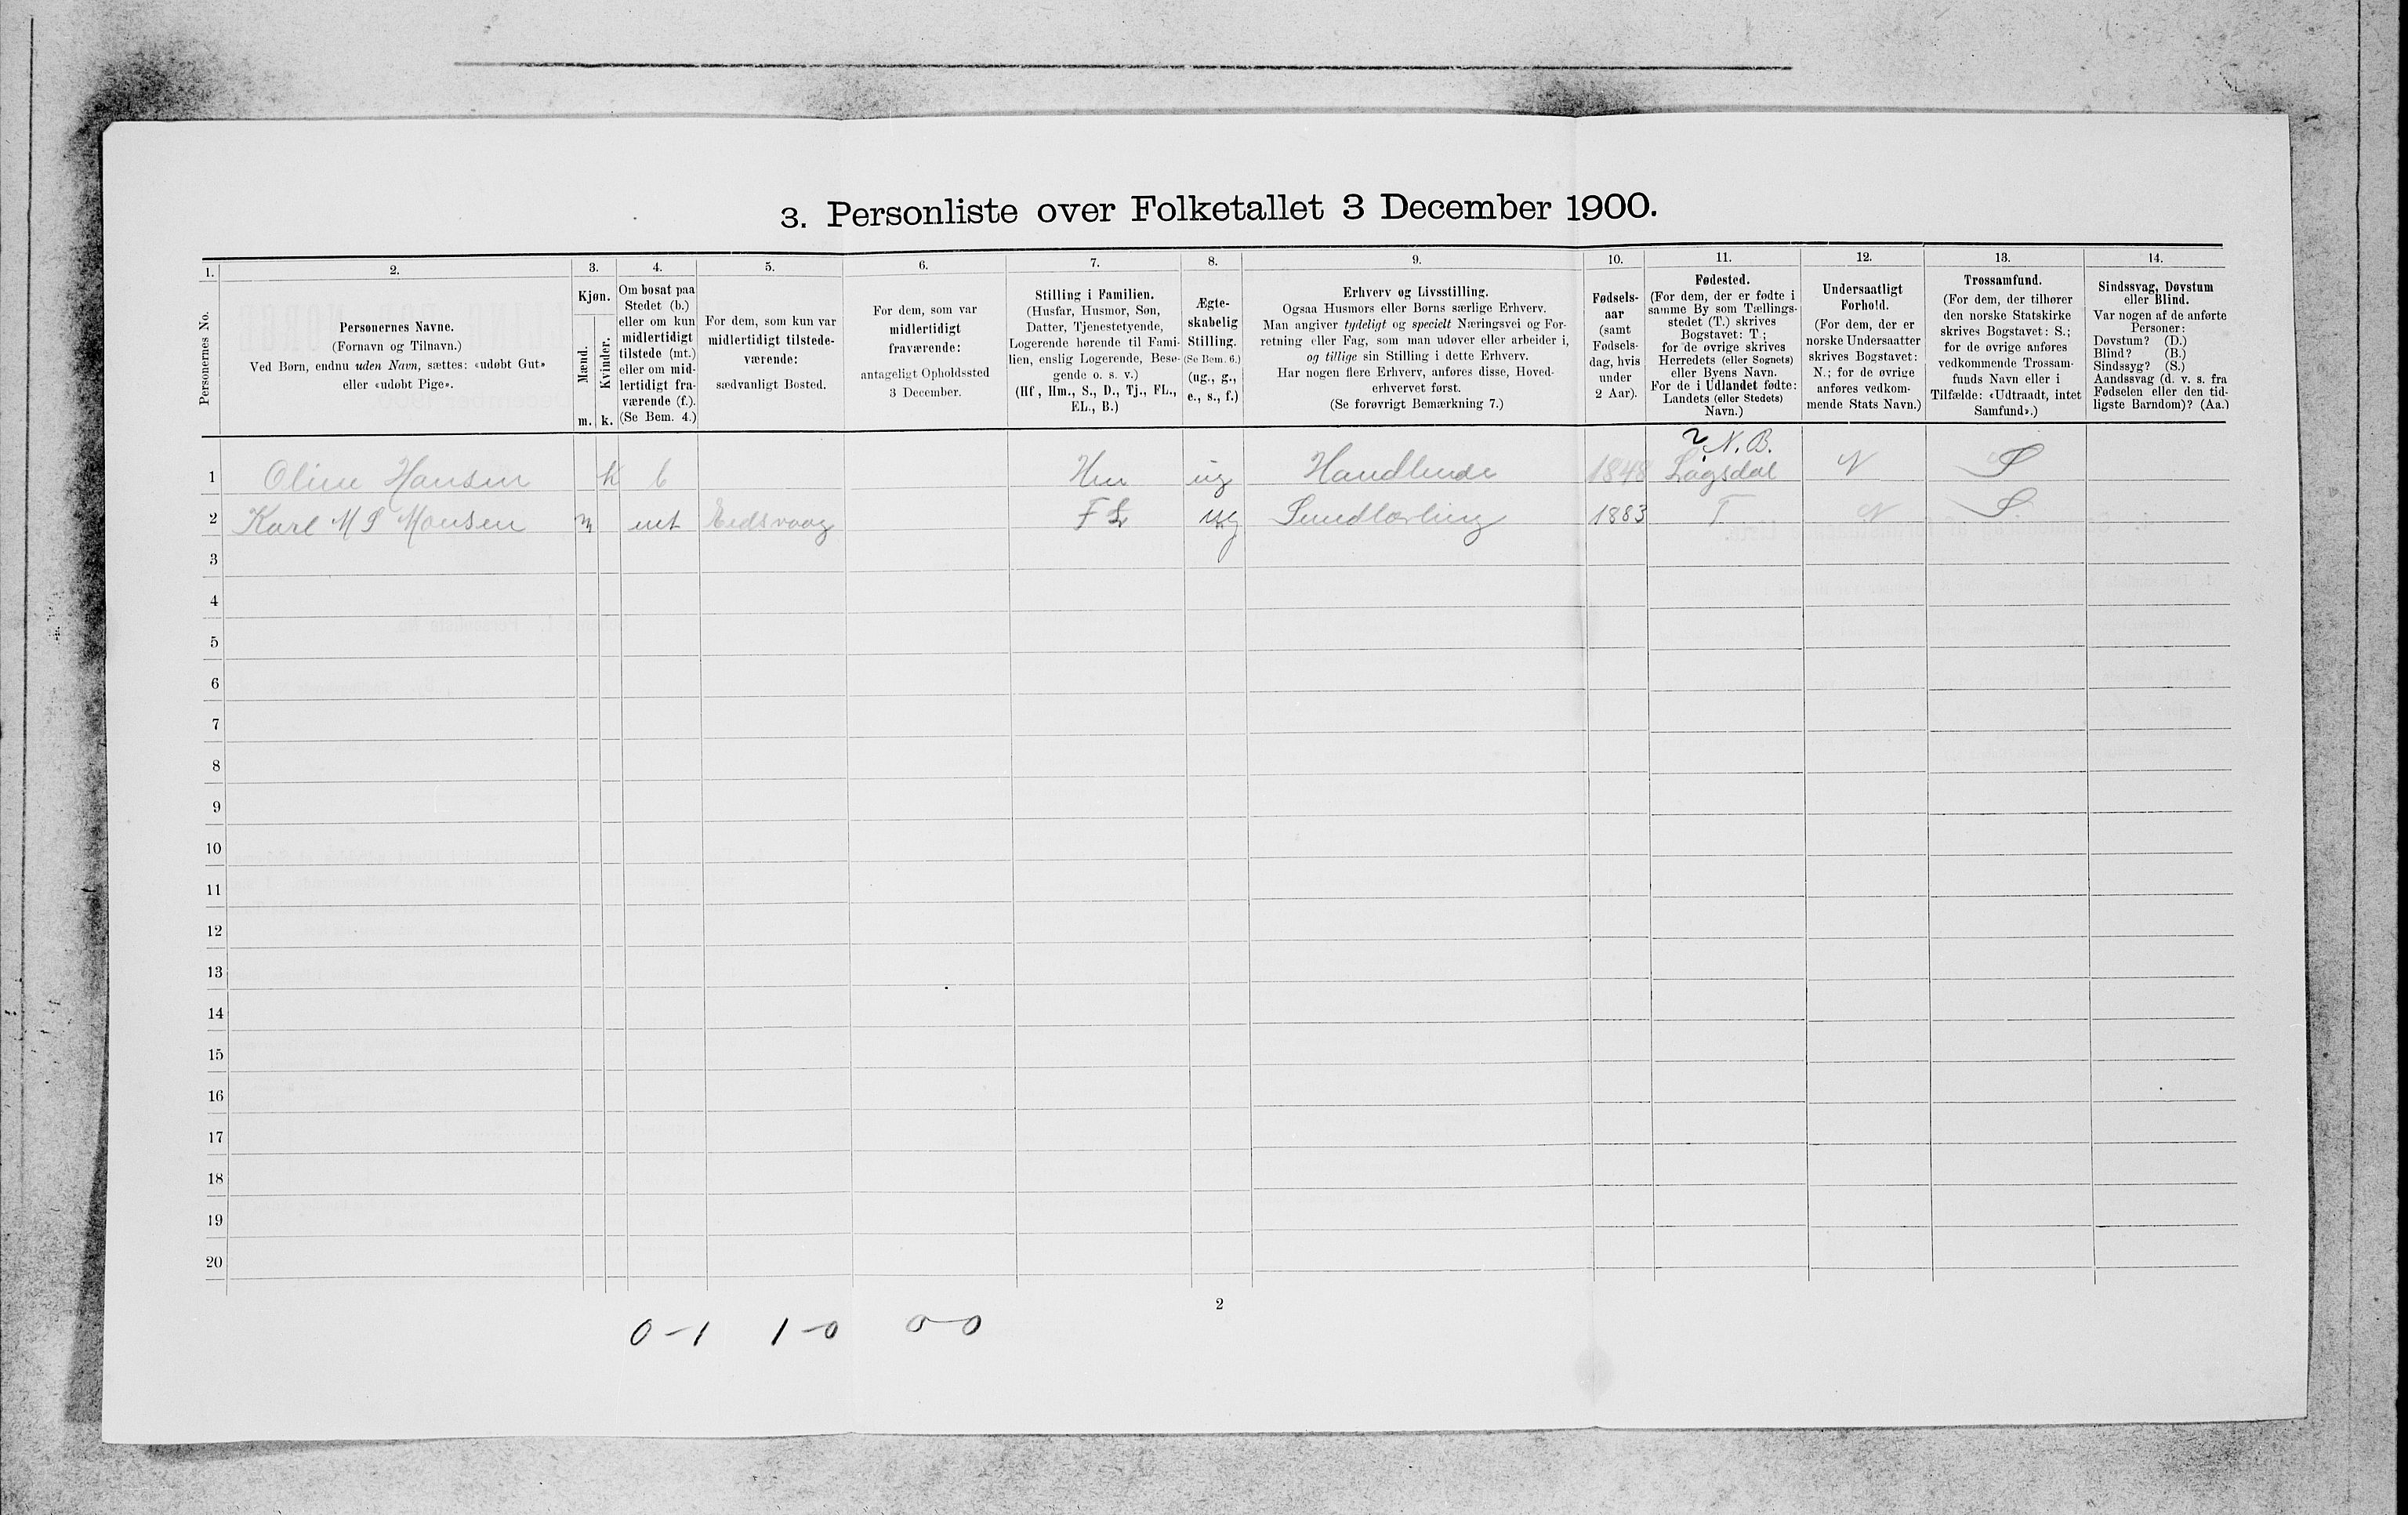 3. Personliste over Folketallet 3 December 1900.
1. 2. 3. 4. 5. 6. 7. 8. 9. 10. 11. 12. 13. 14.
Personernes No.
Personernes Navne.
(Fornavn og Tilnavn.)
Ved Børn, endnu uden Navn, sættes: «udøbt Gut»
eller «udøbt Pige».
Kjøn.
Mænd.
Kvinder.
m. k.
Om bosat paa
Stedet (b.)
eller om kun
midlertidigt
tilstede (mt.)
eller om mid-
lertidigt fra-
værende (f.).
(Se Bem. 4.)
For dem, som kun var
midlertidigt tilstede-
værende:
sædvanligt Bosted.
For dem, som var
midlertidigt
fraværende:
antageligt Opholdssted
3 December.
Stilling i Familien.
(Husfar, Husmor, Søn,
Datter, Tjenestetyende,
Logerende hørende til Fami-
lien, enslig Logerende, Besø-
gende o. s. v.)
(Hf., Hm., S., D., Tj., FL.,
EL., B.)
Ægte-
skabelig
Stilling.
(Se Bem. 6.)
(ug., g.,
e., s., f.)
Erhverv og Livsstilling.
Ogsaa Husmors eller Børns særlige Erhverv.
Man angiver tydeligt og specielt Næringsvei og For-
retning eller Fag, som man udøver eller arbeider i,
og tillige sin Stilling i dette Erhverv.
Har nogen flere Erhverv, anføres disse, Hoved-
erhvervet først.
(Se forøvrigt Bemærkning 7.)
Fødsels-
aar
(samt
Fødsels-
dag, hvis
under
2 Aar).
Fødested.
(For dem, der er fødte i
samme By som Tællings-
stedet (T.) skrives
Bogstavet: T.;
for de øvrige skrives
Herredets (eller Sognets)
eller Byens Navn.
For de i Udlandet fødte:
Landets (eller Stedets)
Navn.)
Undersaatligt
Forhold.
(For dem, der er
norske Undersaatter
skrives Bogstavet:
N.; for de øvrige
anføres vedkom-
mende Stats Navn.)
Trossamfund.
(For dem, der tilhører
den norske Statskirke
skrives Bogstavet: S.;
for de øvrige anføres
vedkommende Trossam-
funds Navn eller i
Tilfælde: «Udtraadt, intet
Samfund».)
Sindssvag, Døvstum
eller Blind.
Var nogen af de anførte
Personer:
Døvstum? (D.)
Blind? (B.)
Sindssyg? (S.)
Aandssvag (d. v. s. fra
Fødselen eller den tid-
ligste Barndom)? (Aa.)
N. B.
1 Oline Hansen k b Hm ug Handlende 1848 Lægsdal N S
2 Karl M S Monsen m mt Eidsvaag FL ug 1883 T N S
3
4
5
6
7
8
9
10
11
12
13
14
15
16
17
18
19
20
2
0-1 1-0 0-0